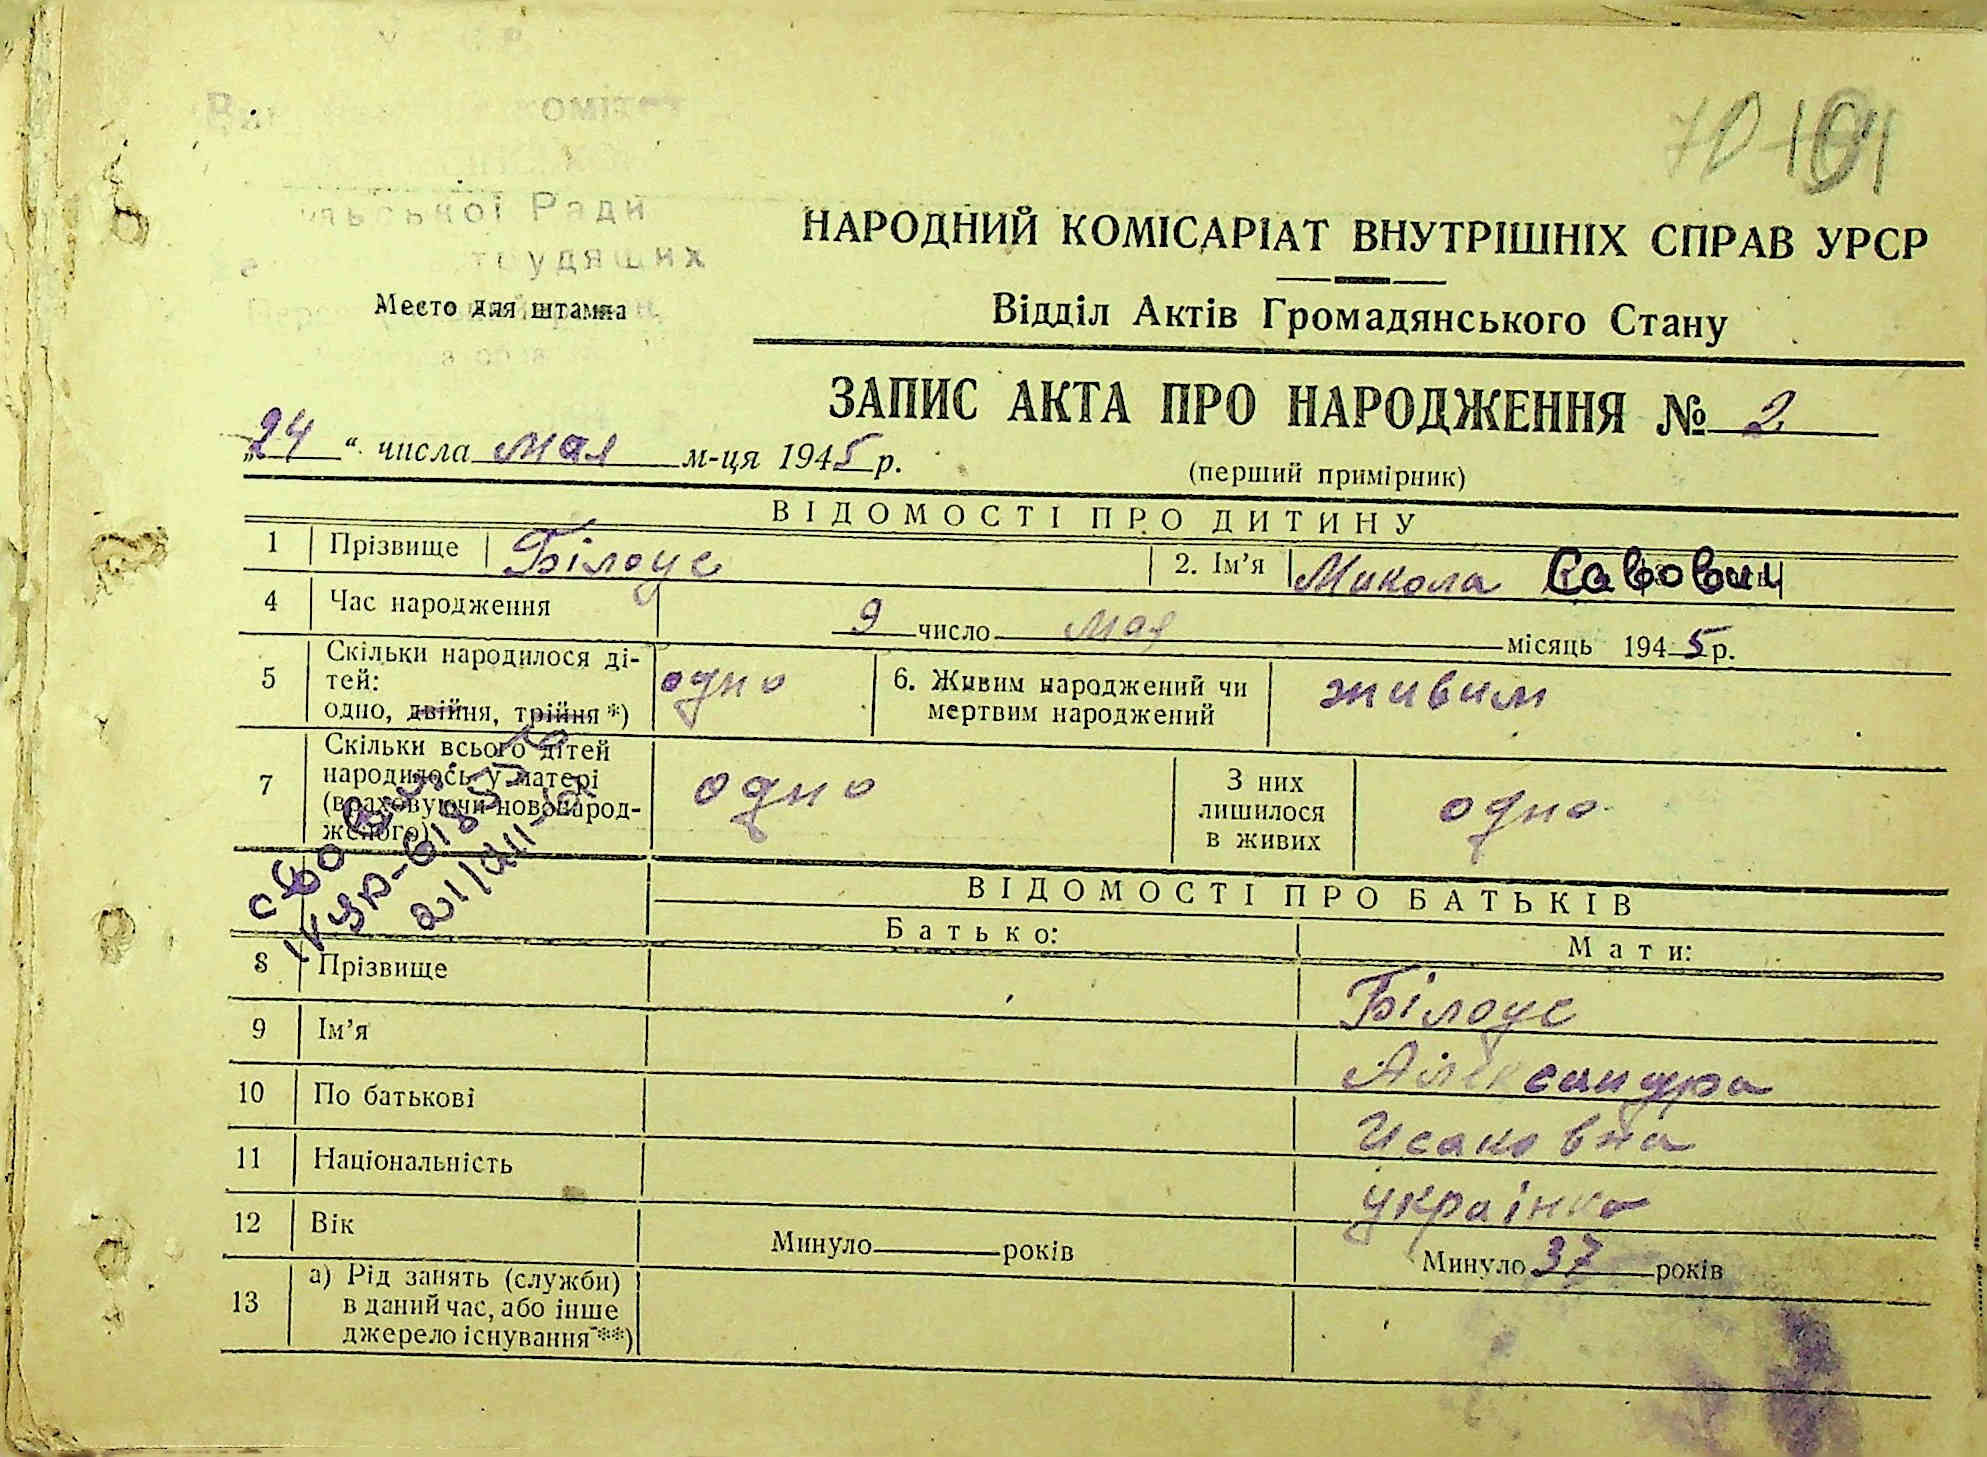 70 101
льської Ради
трудящих
Место для штампа
НАРОДНИЙ КОМІСАРІАТ ВНУТРІШНІХ СПРАВ УРСР
Відділ Актів Громадянського Стану
ЗАПИС АКТА ПРО НАРОДЖЕННЯ № 2
„24“ числа мая м-ця 1945 р.
(перший примірник)
ВІДОМОСТІ ПРО ДИТИНУ
1 Прізвище Білоус 2. Ім’я Микола Савович
4 Час народження 9 число мая місяць 1945 р.
5 Скільки народилося ді-
тей:
одно, двійня, трійня *) одно
6. Живим народжений чи
мертвим народжений живим
7 Скільки всього дітей
народилось у матері
(враховуючи новонарод-
женого) одно
З них
лишилося
в живих одно
ВІДОМОСТІ ПРО БАТЬКІВ
Батько: Мати:
8 Прізвище Білоус
9 Ім’я Александра
10 По батькові Исаковна
11 Національність українка
12 Вік Минуло років Минуло 37 років
13 а) Рід занять (служби)
в даний час, або інше
джерело існування **)